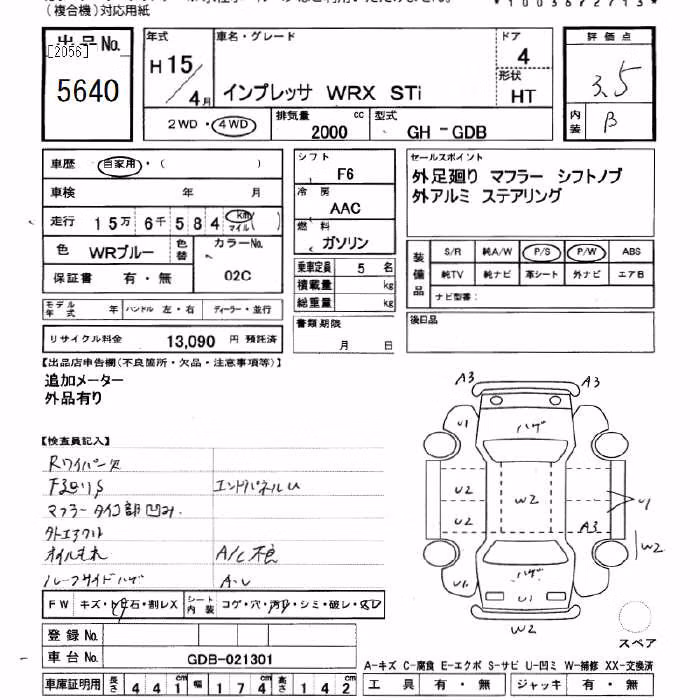 (複合機)対応用紙
*1003672713*
出品No.
[2056]
5640
年式
H15/4月
車名・グレード
インプレッサ WRX STi
ドア
4
形状
HT
評価点
3.5
内装
B
2WD・4WD
排気量
2000 cc
型式
GH-GDB
車歴 自家用・( )
車検 年 月
走行 15万6千584 Km マイル
色 WRブルー
色替
カラーNo.
02C
保証書 有・無
モデル年式 年
ハンドル 左・右
ディーラー・並行
リサイクル料金 13,090 円 預託済
シフト
F6
冷房
AAC
燃料
ガソリン
乗車定員 5 名
積載量 kg
総重量 kg
書類期限
月 日
セールスポイント
外足廻り マフラー シフトノブ
外アルミ ステアリング
装備品
S/R 純A/W P/S P/W ABS
純TV 純ナビ 革シート 外ナビ エアB
ナビ型番:
後日品
【出品店申告欄(不良箇所・欠品・注意事項等)】
追加メーター
外品有り
【検査員記入】
Rワイパー欠
F廻りS
エンドパネルU
マフラータイコ部凹み.
外エアクル
オイルもれ
A/C不良
ルーフサイドハゲ
A-U
FW キズ・ト石・割レX
シート内装 コゲ・穴・汚レ・シミ・破レ・スレ
登録No.
車台No. GDB-021301
車庫証明用 長さ 441cm 幅 174cm 高さ 142cm
A3
A3
U1
ハゲ
U2
W2
U1
U2
A3
W2
U1
ハゲ
U1
W2
スペア
A-キズ C-腐食 E-エクボ S-サビ U-凹ミ W-補修 XX-交換済
工具 有・無 ジャッキ 有・無